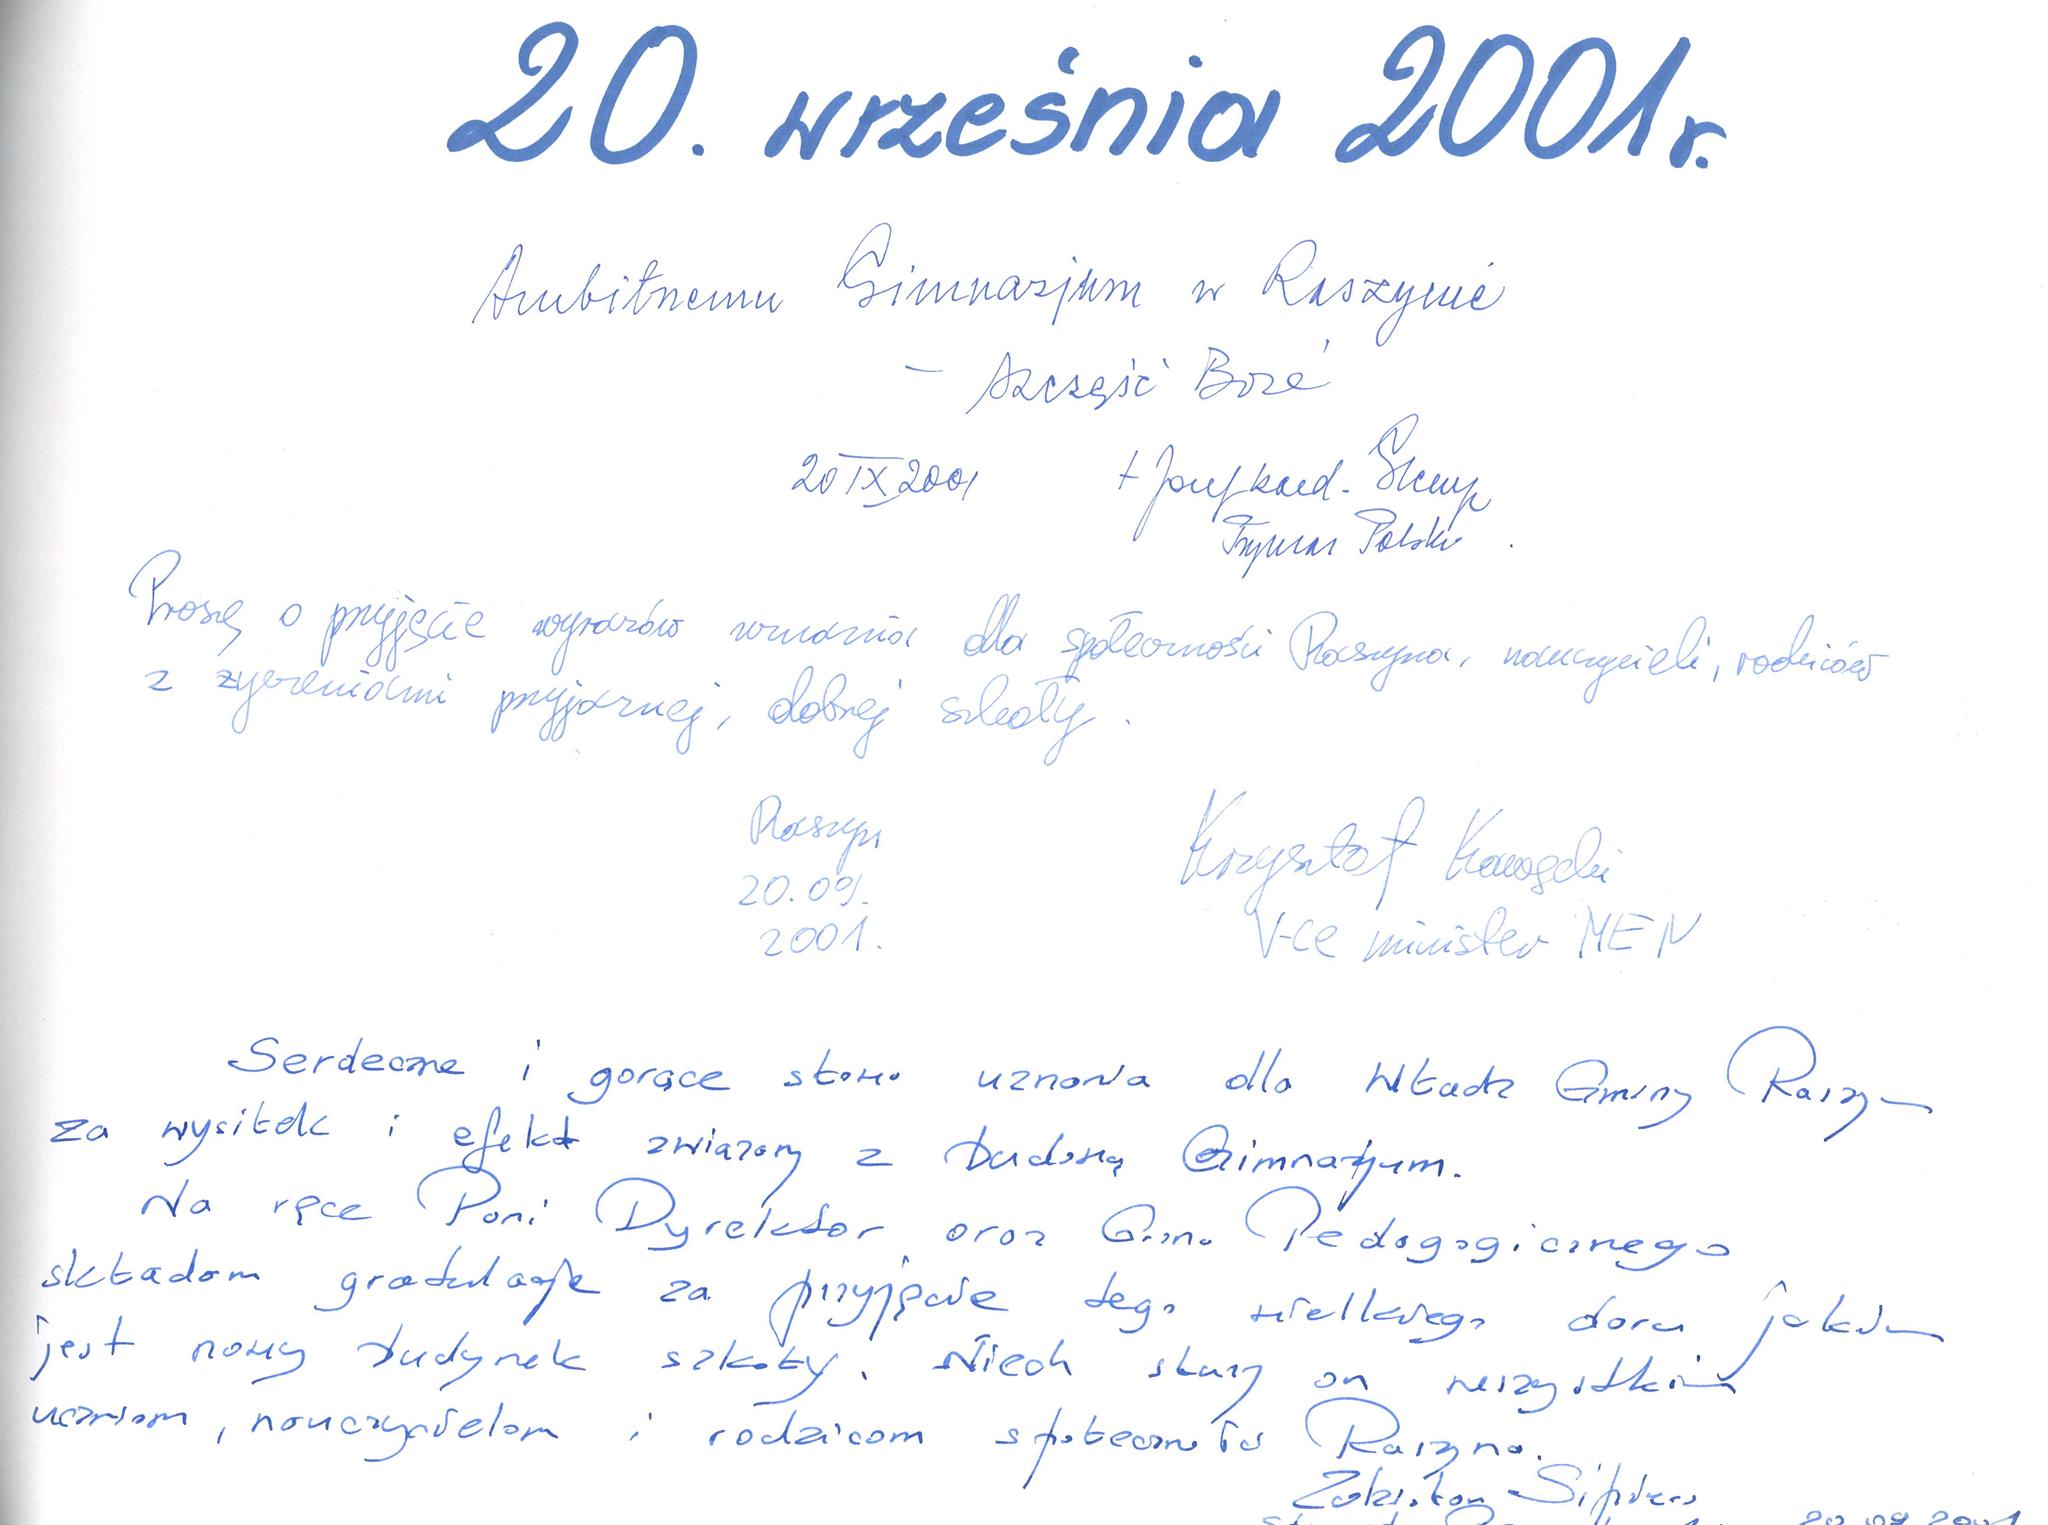 20. września 2001 r.
Ambitnemu Gimnazjum w Raszynie
- Szczęść Boże
20 IX 2001 + Józef kard. Glemp
Prymas Polski.
Proszę o przyjęcie wyrazów uznania dla społeczności Raszyna, nauczycieli, rodziców
z życzeniami przyjaznej, dobrej szkoły.
Raszyn
20.09.
2001.
Krzysztof
V-ce minister MEN
Serdeczne i gorące słowa uznania dla Władz Gminy Raszyn
za wysiłek i efekt związany z budową Gimnazjum.
Na ręce Pani Dyrektor oraz Grona Pedagogicznego
składam gratulacje za przyjęcie tego wielkiego daru jakim
jest nowy budynek szkoły. Niech służy on wszystkim
uczniom, nauczycielom i rodzicom społeczności Raszyna.